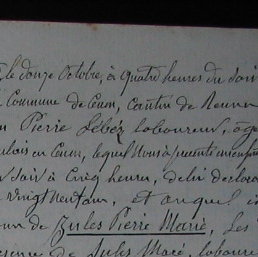 le douze Octobre, à quatre heures du soir
Commune de Cuon, Canton de
Pierre Lebéz laboureur, âgé
en Cuon, lequel Nous a présenté un enfant
Soir à Cinq heures, de lui déclarant
vingt neuf ans, et auquel il
de Jules Pierre Marie, Les
de Jules Macé, laboureur